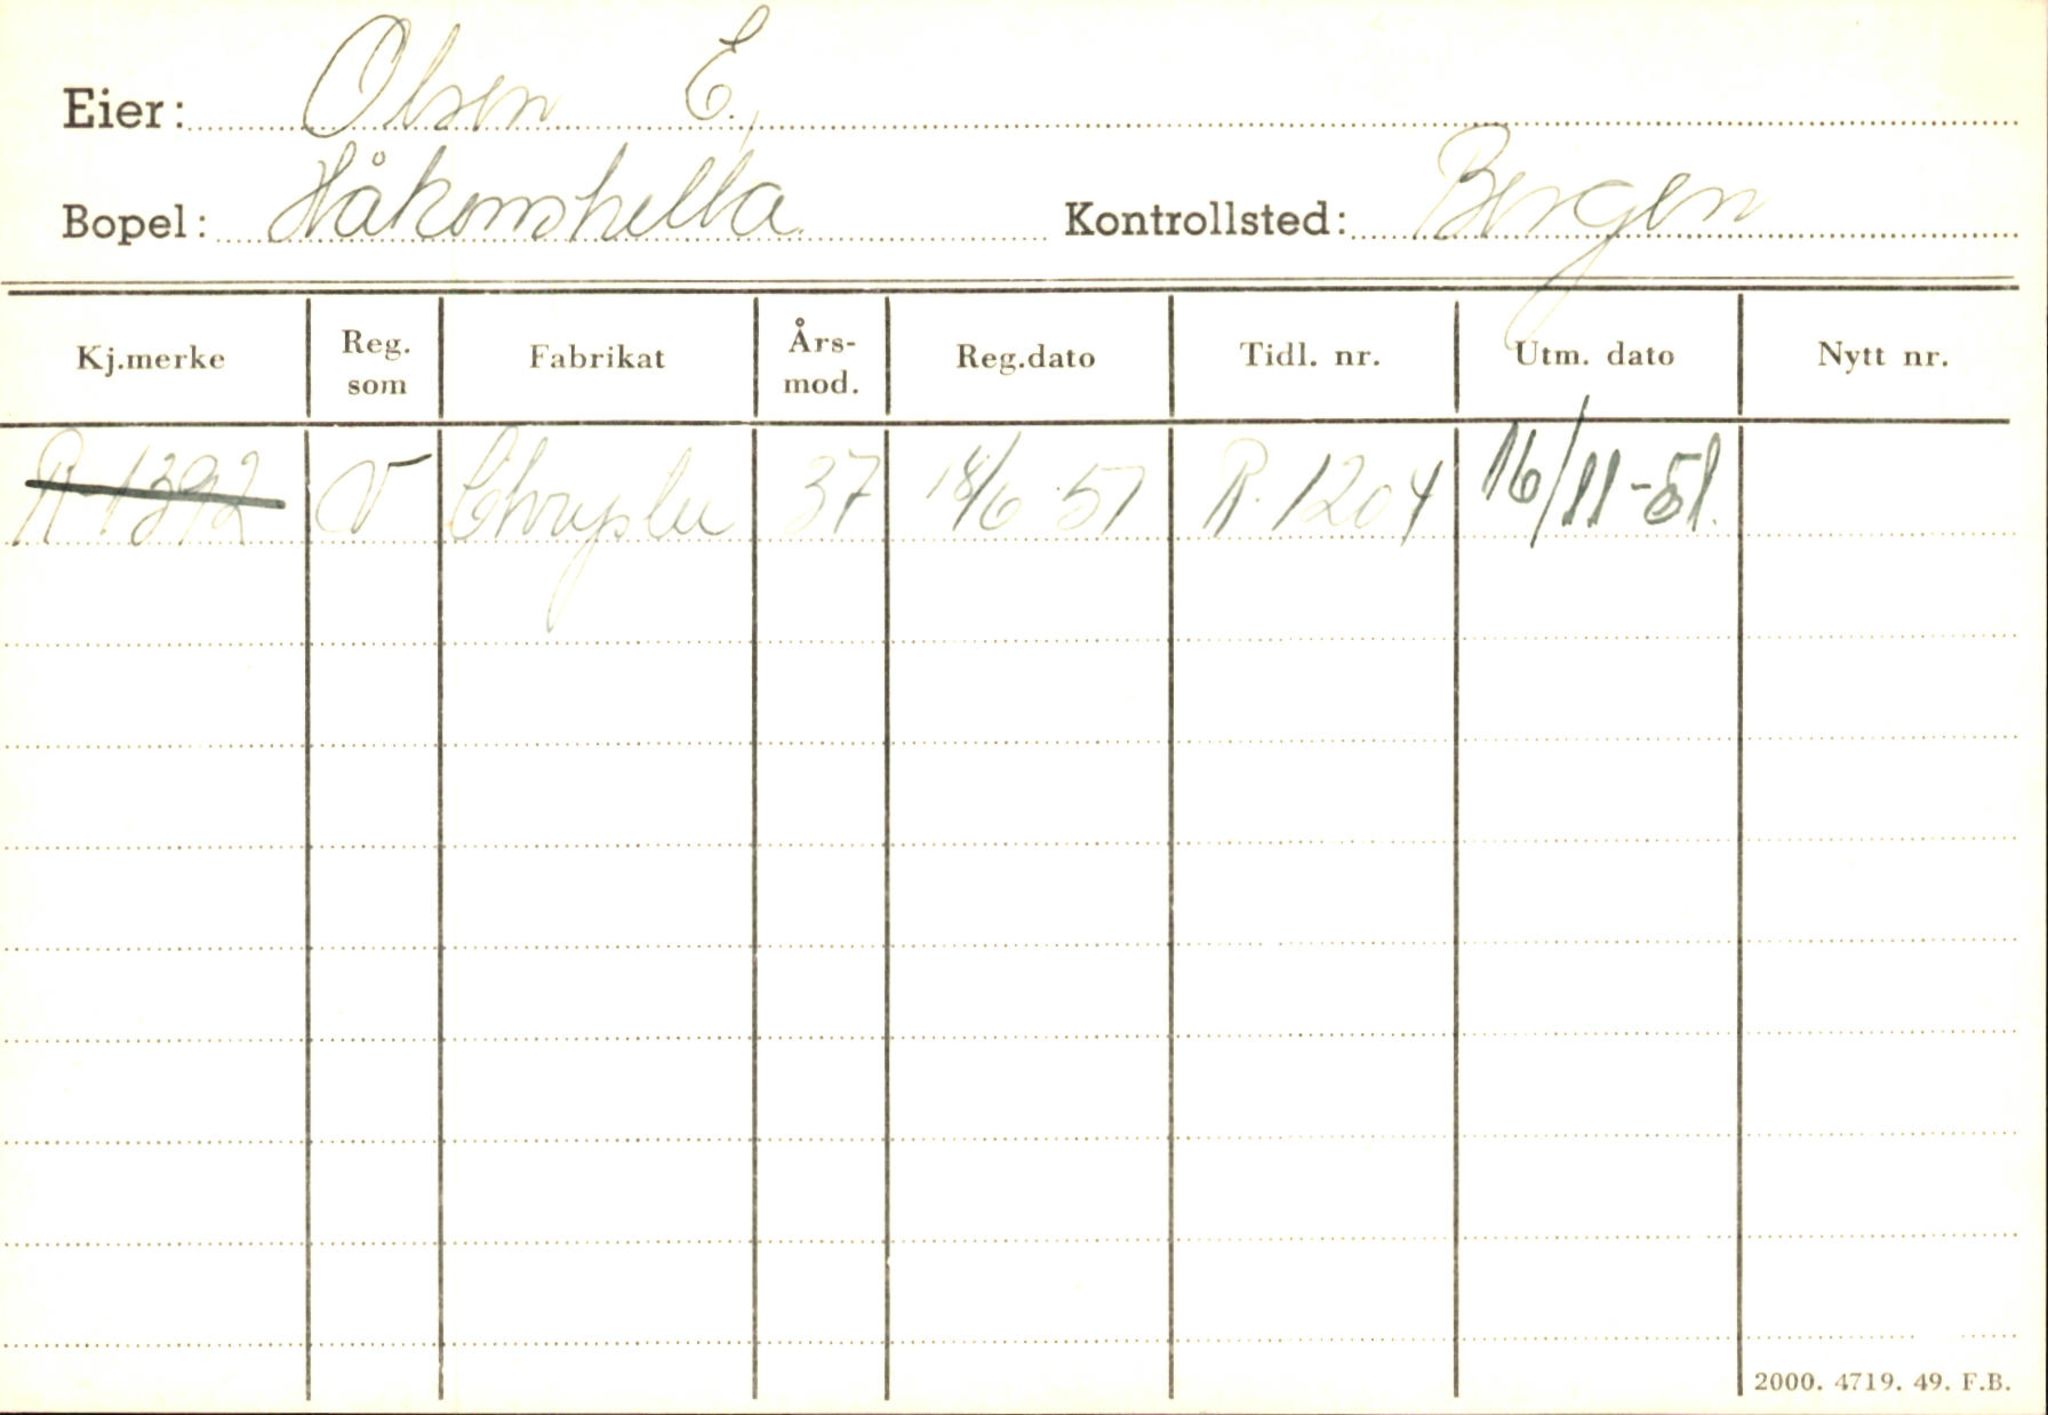 Eier: Olsen E.,
Bopel: Håkonshella. Kontrollsted: Bergen
Kj.merke Reg. som Fabrikat Års-mod. Reg.dato Tidl. nr. Utm. dato Nytt nr.
R-1392 V Chrysler 37 18/6-51 R-1204 16/11-51.
2000. 4719. 49. F.B.